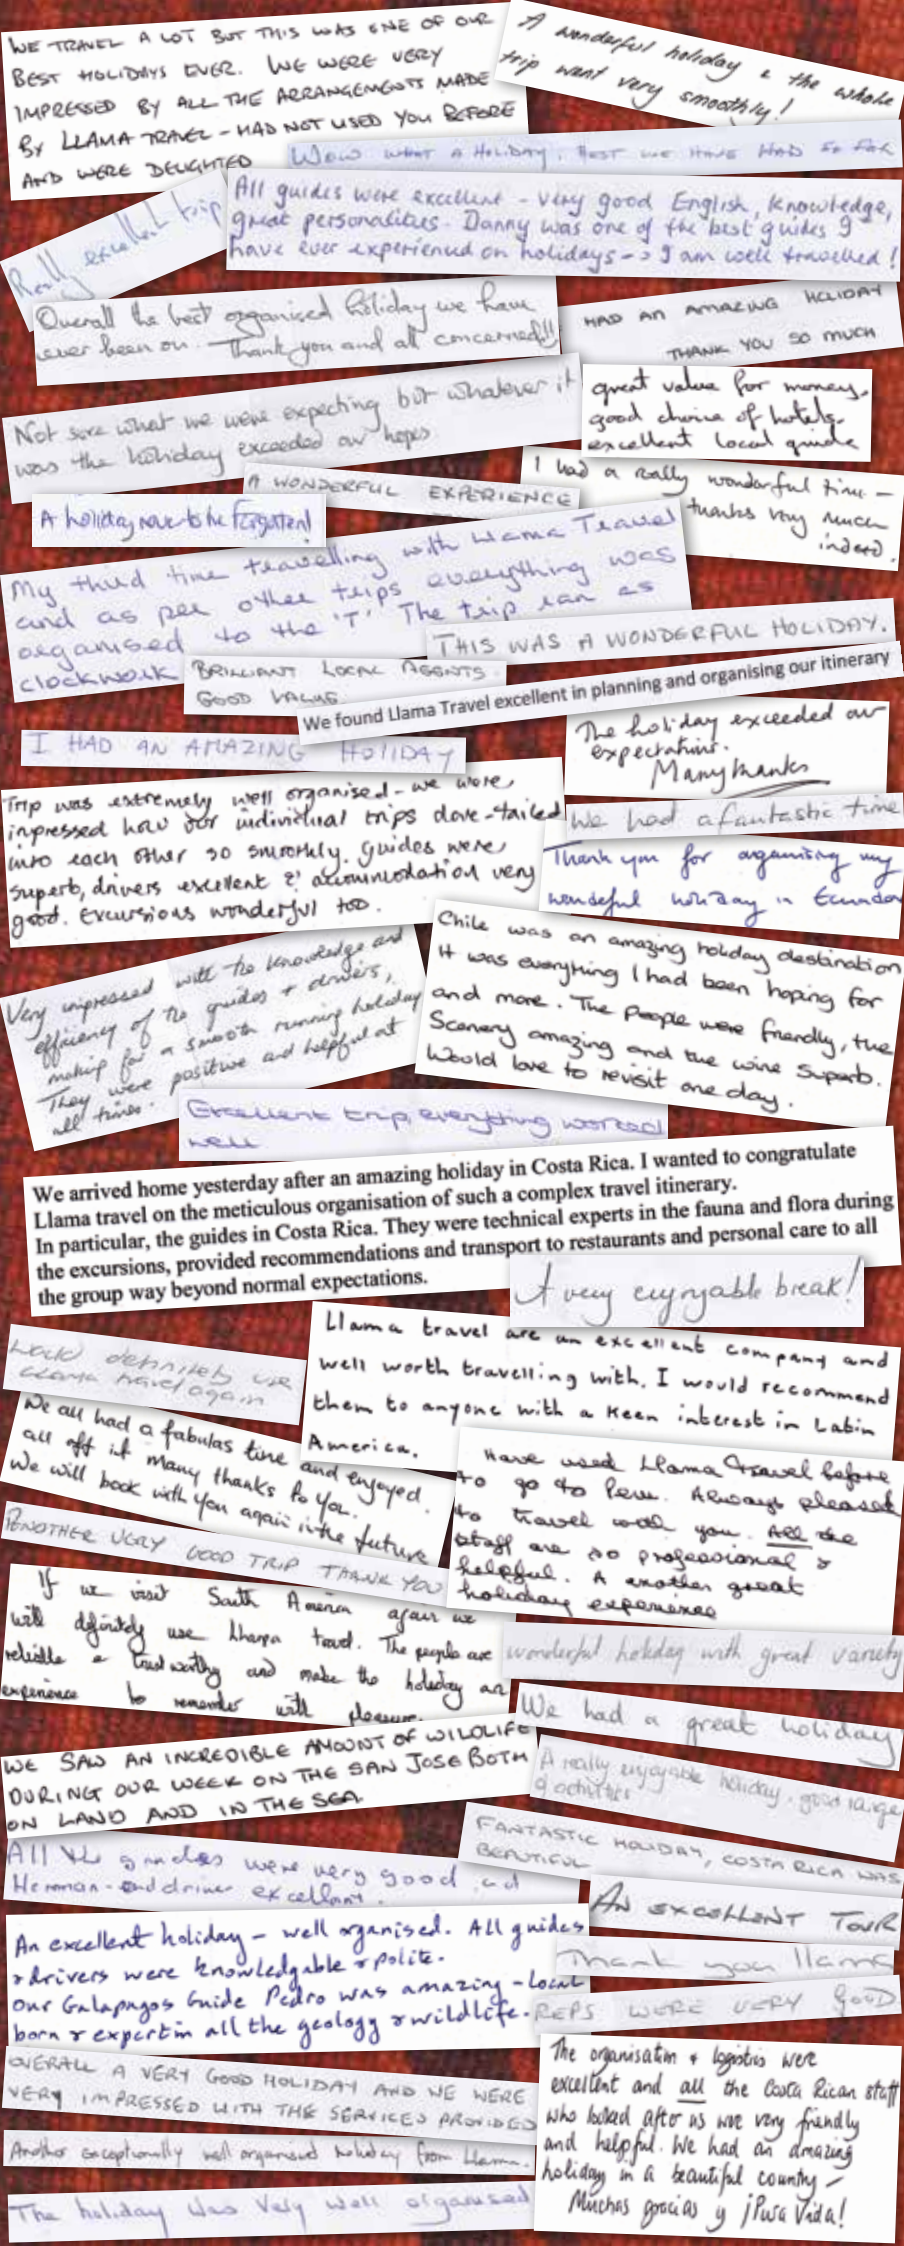 WE TRAVEL A LOT BUT THIS WAS ONE OF OUR
BEST HOLIDAYS EVER. WE WERE VERY
IMPRESSED BY ALL THE ARRANGEMENTS MADE
BY LLAMA TRAVEL - HAD NOT USED YOU BEFORE
AND WERE DELIGHTED
A wonderful holiday & the whole
trip went very smoothly!
WOW WHAT A HOLIDAY, BEST WE HAVE HAD SO FAR
Really excellent trip
All guides were excellent - very good English, knowledge,
great personalities. Danny was one of the best guides I
have ever experienced on holidays -> I am well travelled!
Overall the best organised holiday we have
ever been on. Thank you and all concerned!!
HAD AN AMAZING HOLIDAY
THANK YOU SO MUCH
Not sure what we were expecting but whatever it
was the holiday exceeded our hopes.
great value for money,
good choice of hotels.
excellent local guide
A WONDERFUL EXPERIENCE
I had a really wonderful time -
thanks very much
indeed.
A holiday never to be forgotten!
My third time travelling with Llama Travel
and as per other trips everything was
organised to the 'T' The trip ran as
clockwork
THIS WAS A WONDERFUL HOLIDAY.
BRILLIANT LOCAL AGENTS.
GOOD VALUE
We found Llama Travel excellent in planning and organising our itinerary
I HAD AN AMAZING HOLIDAY
The holiday exceeded our
expectations.
Many thanks
Trip was extremely well organised - we were
impressed how our individual trips dove-tailed
into each other so smoothly. Guides were
superb, drivers excellent & accommodation very
good. Excursions wonderful too.
We had a fantastic time
Thank you for organising my
wonderful holiday in Ecuador
Very impressed with the knowledge and
efficiency of the guides + drivers,
making for a smooth running holiday
They were positive and helpful at
all times.
Chile was an amazing holiday destination
It was everything I had been hoping for
and more. The people were friendly, the
Scenery amazing and the wine superb.
Would love to revisit one day.
Excellent trip, everything worked
well
We arrived home yesterday after an amazing holiday in Costa Rica. I wanted to congratulate
Llama travel on the meticulous organisation of such a complex travel itinerary.
In particular, the guides in Costa Rica. They were technical experts in the fauna and flora during
the excursions, provided recommendations and transport to restaurants and personal care to all
the group way beyond normal expectations.
A very enjoyable break!
Would definitely use
Llama travel again
Llama travel are an excellent company and
well worth travelling with. I would recommend
them to anyone with a keen interest in Latin
America.
We all had a fabulas time and enjoyed
all off it many thanks to you.
We will book with you again in the future
Have used Llama Travel before
to go to Peru. Always pleased
to travel with you. All the
staff are so professional &
helpful. A another great
holiday experience
ANOTHER VERY GOOD TRIP THANK YOU
If we visit South America again we
will definitely use Lhama travel. The people are
reliable & trustworthy and make the holiday an
experience to remember with pleasure.
wonderful holiday with great variety
We had a great holiday
WE SAW AN INCREDIBLE AMOUNT OF WILDLIFE
DURING OUR WEEK ON THE SAN JOSE BOTH
ON LAND AND IN THE SEA
A really enjoyable holiday, good range
of activities
FANTASTIC HOLIDAY, COSTA RICA WAS
BEAUTIFUL
All the guides were very good and
Herman - and driver excellent.
AN EXCELLENT TOUR
An excellent holiday - well organised. All guides
& drivers were knowledgable & polite.
Our Galapagos Guide Pedro was amazing - local
born & expert in all the geology & wildlife.
Thank you llama
REPS WERE VERY GOOD
OVERALL A VERY GOOD HOLIDAY AND WE WERE
VERY IMPRESSED WITH THE SERVICES PROVIDED
The organisation & logistics were
excellent and all the Costa Rican staff
who looked after us were very friendly
and helpful. We had an amazing
holiday in a beautiful country -
Muchas gracias y ¡Pura Vida!
Another exceptionally well organised holiday from Llama.
The holiday was very well organised